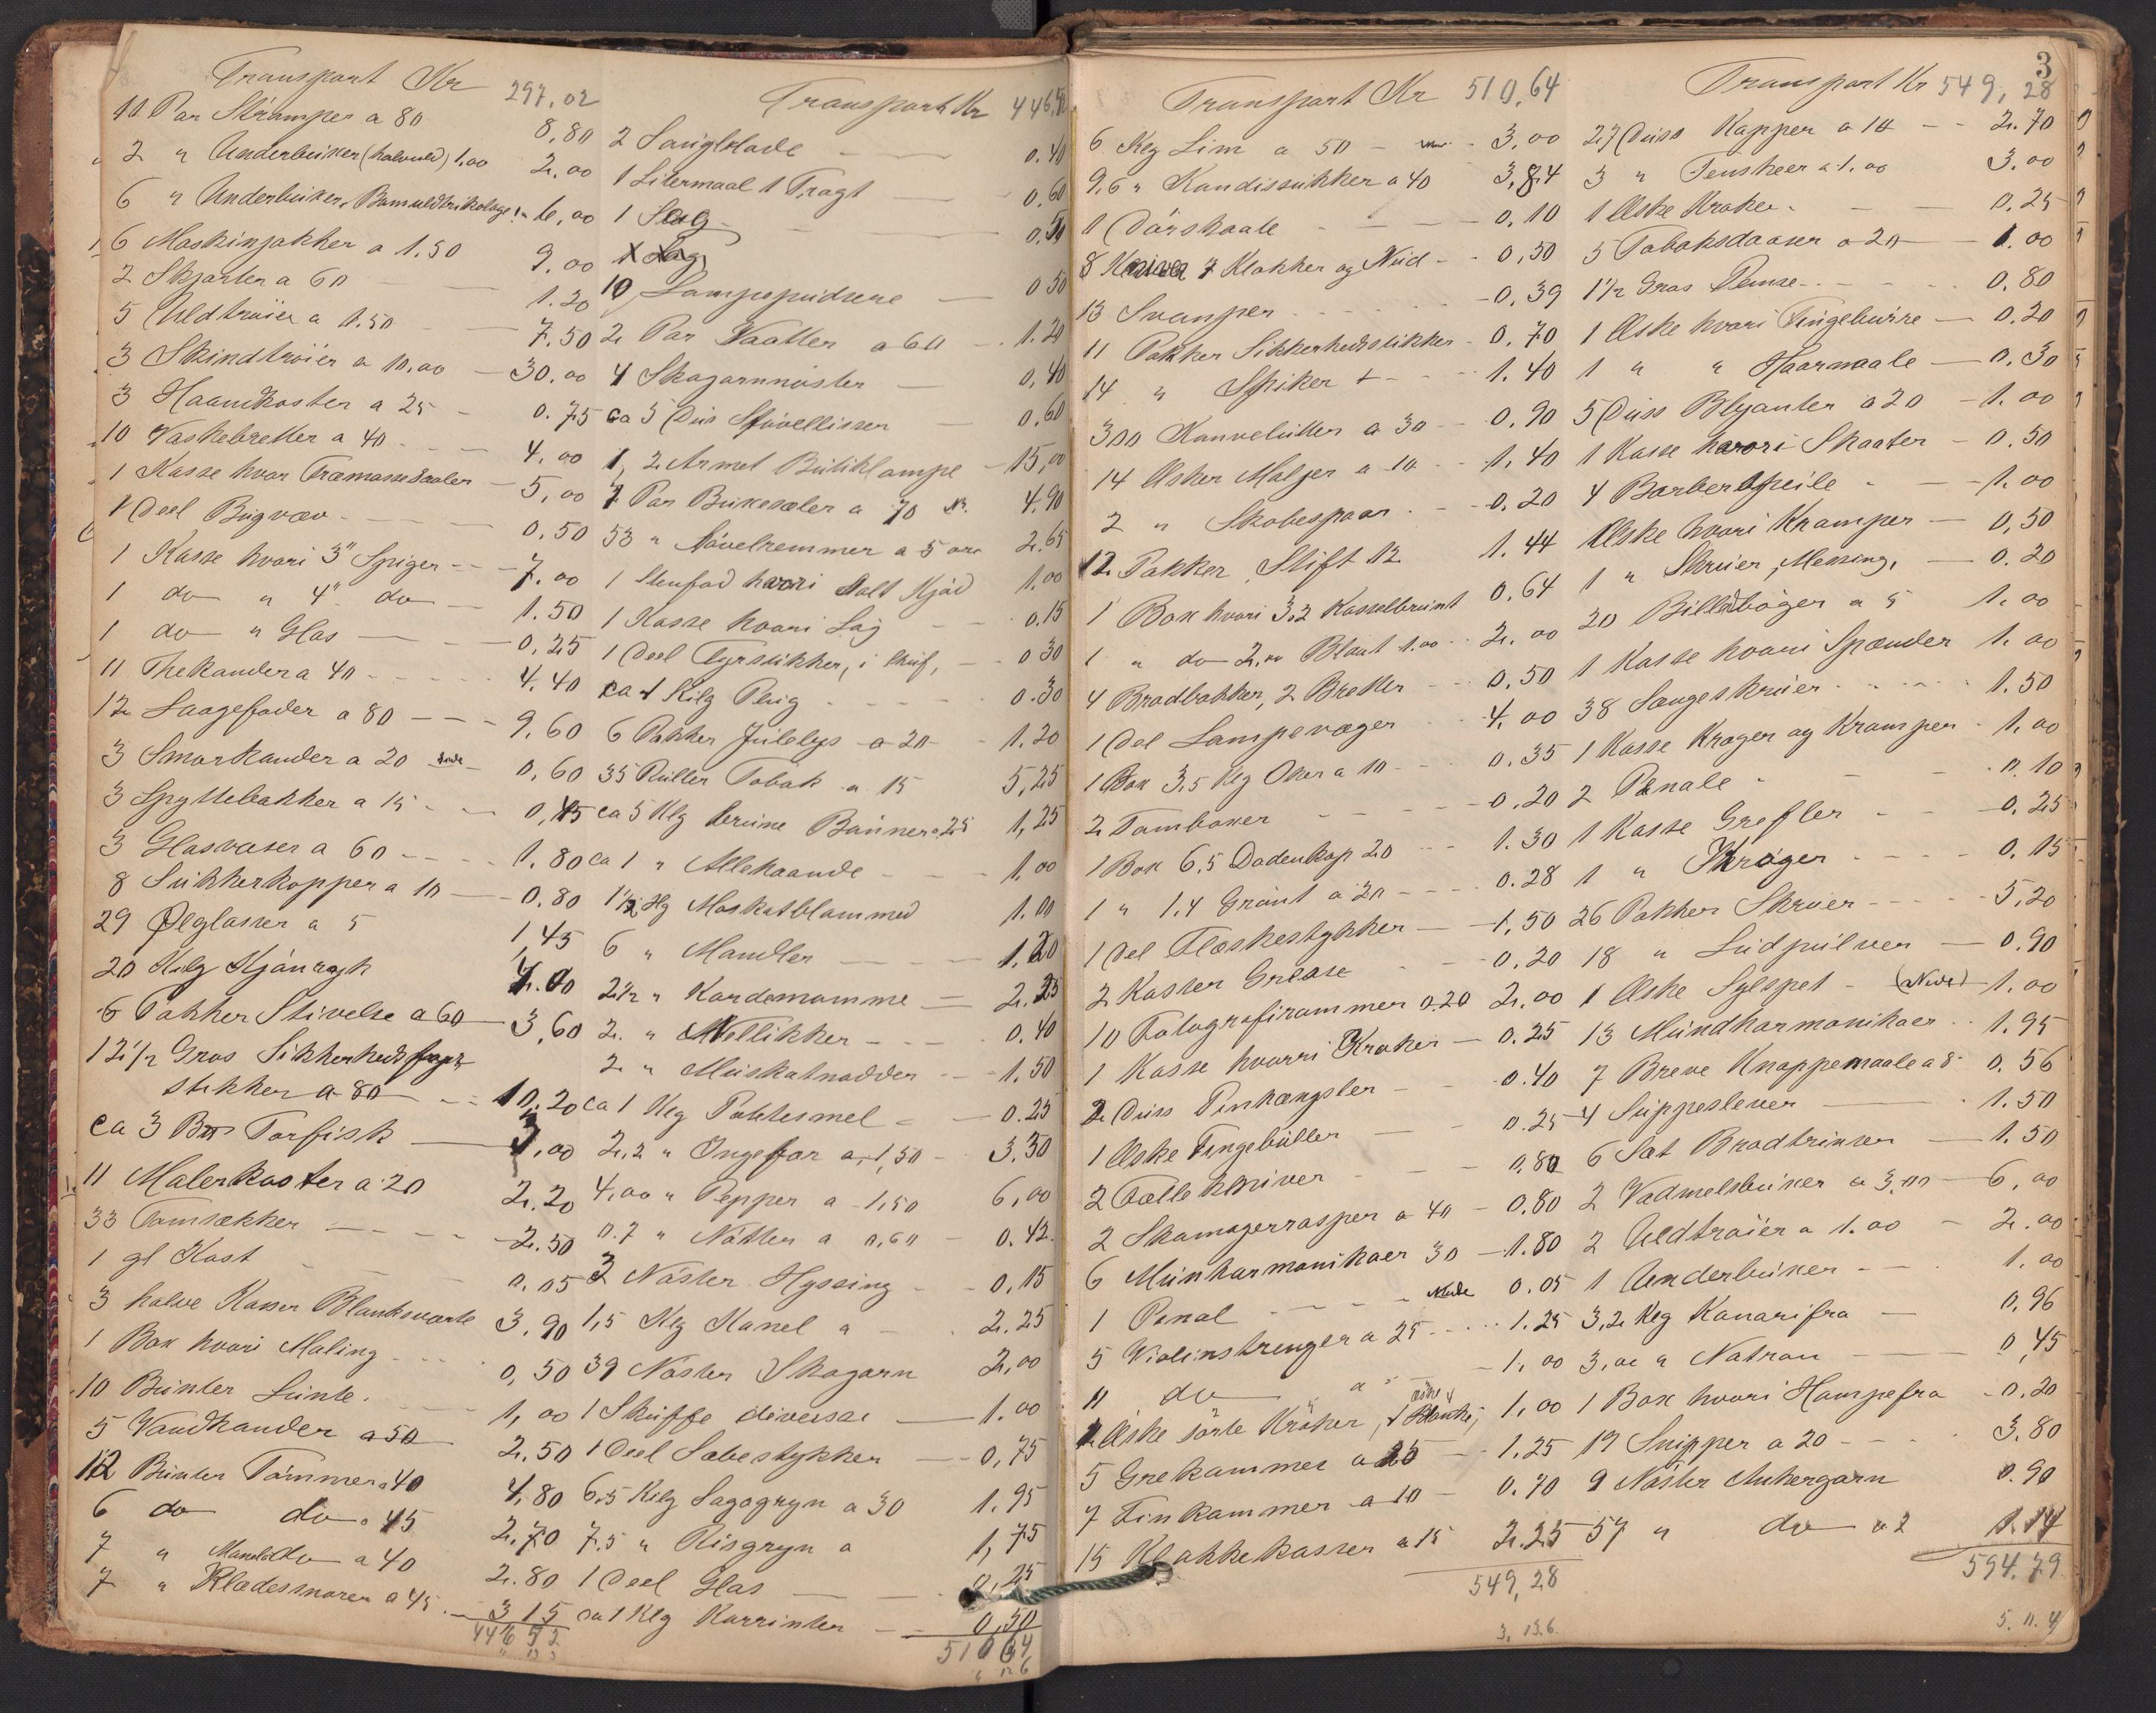 Transport Kr 297,02
11 Par Strømper a 80 8,80
2 " Underbuxer (halvuld) 1.00 2.00
6 " Underbuxer, Bomuldtrikotage 1- 6,00
6 Maskinjakker a 1.50 9.00
2 Skjorter a 60 1.20
5 Uldtrøier a 1.50 7.50
3 Skindtrøier a 10,00 30,00
3 Haandkoster a 25 0.75
10 Vaskebretter a 40 4.00
1 Kasse hvor Træmassesaaler 5,00
1 Deel Bugvæv 0.50
1 Kasse hvori 3" Spiger 7.00
1 do " 4" do 1.50
1 do " Glas 0,25
11 Thekander a 40 4.40
12 Laagefader a 80 9,60
3 Smørkander a 20 0,60
3 Spyttebakker a 15 0,45
3 Glasvaser a 60 1.80
8 Sukkerkopper a 10 0.80
29 Ølglasser a 5 1,45
20 Kilg Kjønrøgk 4.00
6 Pakker Stivelse a 60 3,60
12 1/2 Gros Sikkerhedsfyr
stikker a 80 10.20
ca 3 Bn Tørfisk 3,00
11 Malerkoster a 20 2.20
33 Tomsækker 2.50
1 gl Kost 0,05
3 halve Kasser Blanksværte 3,90
1 Box hvori Maling 0,50
10 Bunter Lunte 1,00
5 Vandkander a 50 2.50
12 Bunter Tømmer a 40 4,80
6 do do a 45 2.70
7 " do a 40 2.80
7 " Klædessnorer a 45 3 15
446 52
Transport Kr 446,52
2 Saugblade 0.40
1 Litermaal 1 Tragt 0,60
1 Slag 0,50
10 Lampepudsere 0 50
2 Par Vaatter a 60 1.20
4 Skogarnnøster 0,40
ca 5 Dus Støvellisser 0,60
1, 2 Armet Butiklampe 15,00
7 Par Buxeseler a 70 4.90
53 " Støvelremmer a 5 øre 2.65
1 Stenfad hvori Salt Kjød 1,00
1 Kasse hvori Løg 0.15
1 Deel Fyrstikker, i Skuf, 0 30
ca 1 Kilg Plug 0.30
6 Pakker Julelys a 20 1.20
35 Ruller Tobak a 15 5,25
ca 5 Klg brune Bønner a 25 1,25
ca 1 " Allehaande 1,00
1 1/2 Hg Moskatblommed 1.00
6 " Mandler 1.20
2 1/2 " Kardemomme 2.25
2. " Nellikker 0.40
2 " Muskatnødder 1.50
ca 1 Klg Pottesmel 0.25
2,2 " Ingefær a 1,50 3.30
4,00 " Pepper a 1,50 6,00
0.7 " Nøtter a 0,60 0.42
3 Nøster Hyssing 0,15
1,5 Klg Kanel a 2.25
39 Nøster Skogarn 2,00
1 Skuffe diverse 1.00
1 Deel Sæbestykker 0,75
6.5 Kilg Sagogryn a 30 1.95
7.5 " Risgryn a 1,75
1 Deel Glas 0,25
ca 1 Klg Korrinter 0,50
510 64
3
Transport Kr 510,64
6 Klg Lim a 50 3,00
9,6 " Kandissukker a 40 3,84
1 Dørskaale 0.10
8 Kniver 7 Klokker og Nud 0,50
13 Svamper 0,39
11 Pakker Sikkerhedsstikker 0,70
14 " Spiker 1.40
300 Konvolutter a 30 0,90
14 Æsker Maljer a 10 1,40
2 " Skobespaar 0.20
12 Pakker Stift 12 1.44
1 Box hvori 3.2 Kasselbrunt 0.64
1 " do 2,00 Blaat 1.00 2.00
4 Brødbakker, 2 Bretter 0.50
1 Del Lampevæger 4.00
1 Box 3.5 Klg Oker a 10 0.35
2 Tomboxer 0.20
1 Box 6.5 Dodenkop 20 1.30
1 " 1.4 Grønt a 20 0.28
1 Del Flæskestykker 1,50
2 Kasser Grease 0.20
10 Fotografirammer a 20 2.00
1 Kasse hvorri Kroker 0.25
2 Duss Penhængsler 0.40
1 Æske Fingebøller 0.25
2 Follekniver 0.80
2 Skomagerrasper a 40 0.80
6 Munharmonikaer 30 1.80
1 Penal 0.05
5 Violinstrenger a 25 1.25
11 do a 1,00
1 Æske sorte Kroker, 1 æske Blanke, 1,00
5 Grekammer a 25 1.25
7 Finkammer a 10 0.70
15 Klakkekasser a 15 2.25
549,28
3, 13.6.
Transport Kr 549,28
27 Duss Kapper a 10 2.70
3 " Tenskeer a 1.00 3.00
1 Æske Kroker 0,25
5 Tobaksdaaser a 20 1.00
1 1/2 Gros Penne 0,80
1 Æske hvori Fingebøire 0.20
1 " " Haarnaale 0.30
5 Duss Blyanter a 20 1.00
1 Kasse hvori Skaater 0.50
4 Barberspeile 1.00
Æske hvori Kramper 0,50
1 " Skruer, Messing, 0.20
20 Billedbøger a 5 1.00
1 Kasse hvori Spænder 1.00
38 Sengeskruer 1.50
1 Kasse Kroger og Kramper 1,00
2 Penale 0.10
1 Kasse Grefler 0.25
1 " Kroger 0.15
26 Pakker Skruer 5,20
18 " Ludpulver 0.90
1 Æske Sølspet 1.00
13 Mundharmonikaer 1.95
7 Breve Knappenaale a 8 0.56
4 Suppeslever 1.50
6 Sæt Brødtrinser 1.50
2 Vadmelsbuxer a 3.00 6,00
2 Uldtrøier a 1.00 2.00
1 Underbuxer 1,00
3,2 Klg Kanarifrø 0,96
3,00 " Natron 0,45
1 Box hvori Hampefrø 0,20
19 Snipper a 20 3.80
9 Nøster Ankergarn 0.90
57 " do a 2 1.14
594.79
5.11.4